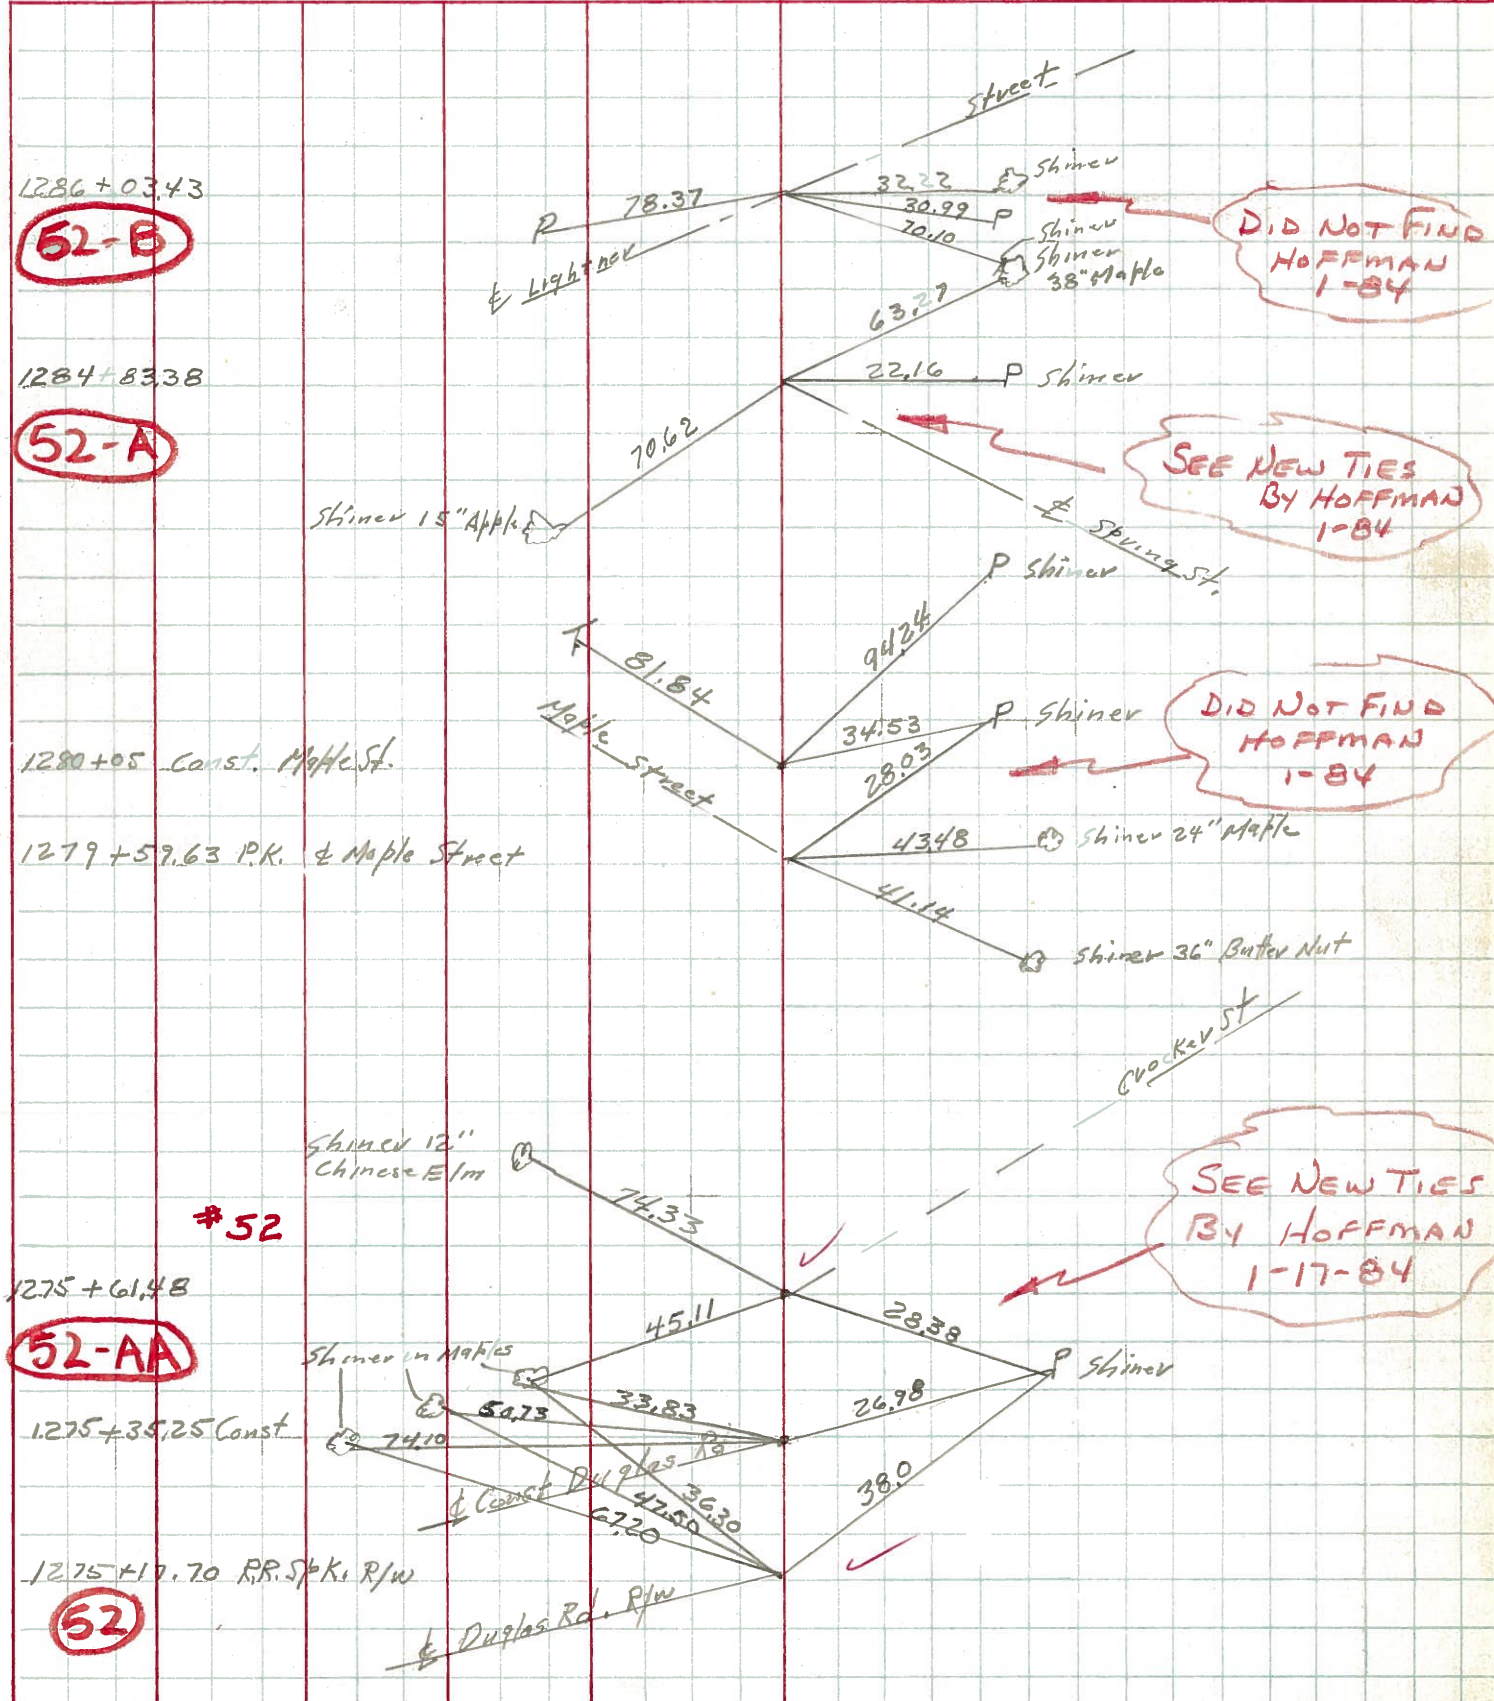 Street
1286 + 03.43
78.37
32.22
Shiner
30.99
P
70.10
Shiner
Shiner
38" Maple
P
DID NOT FIND
HOFFMAN
1-84
52-B
℄ Lightner
63.27
1284+83.38
22.16
P Shiner
52-A
70.62
SEE NEW TIES
BY HOFFMAN
1-84
Shiner 15" Apple
℄ Spring St.
P Shiner
94.24
T
81.84
Maple Street
34.53
P Shiner
DID NOT FIND
HOFFMAN
1-84
1280+05 Const. Maple St.
28.03
1279+59.63 P.K. ℄ Maple Street
43.48
Shiner 24" Maple
41.14
Shiner 36" Butter Nut
Crocker St
Shiner 12"
Chinese Elm
74.33
#52
SEE NEW TIES
BY HOFFMAN
1-17-84
1275+61.48
45.11
28.38
52-AA
Shiner in Maples
P Shiner
33.83
50.73
26.98
1275+35.25 Const
74.10
℄ Const Duglas Rd
36.30
47.50
67.20
38.0
1275+17.70 R.R. Spk. R/W
52
℄ Duglas Rd. R/W